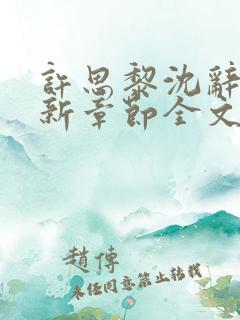 許思黎沈辭
新章節全文
趙傳
未经同意禁止转载